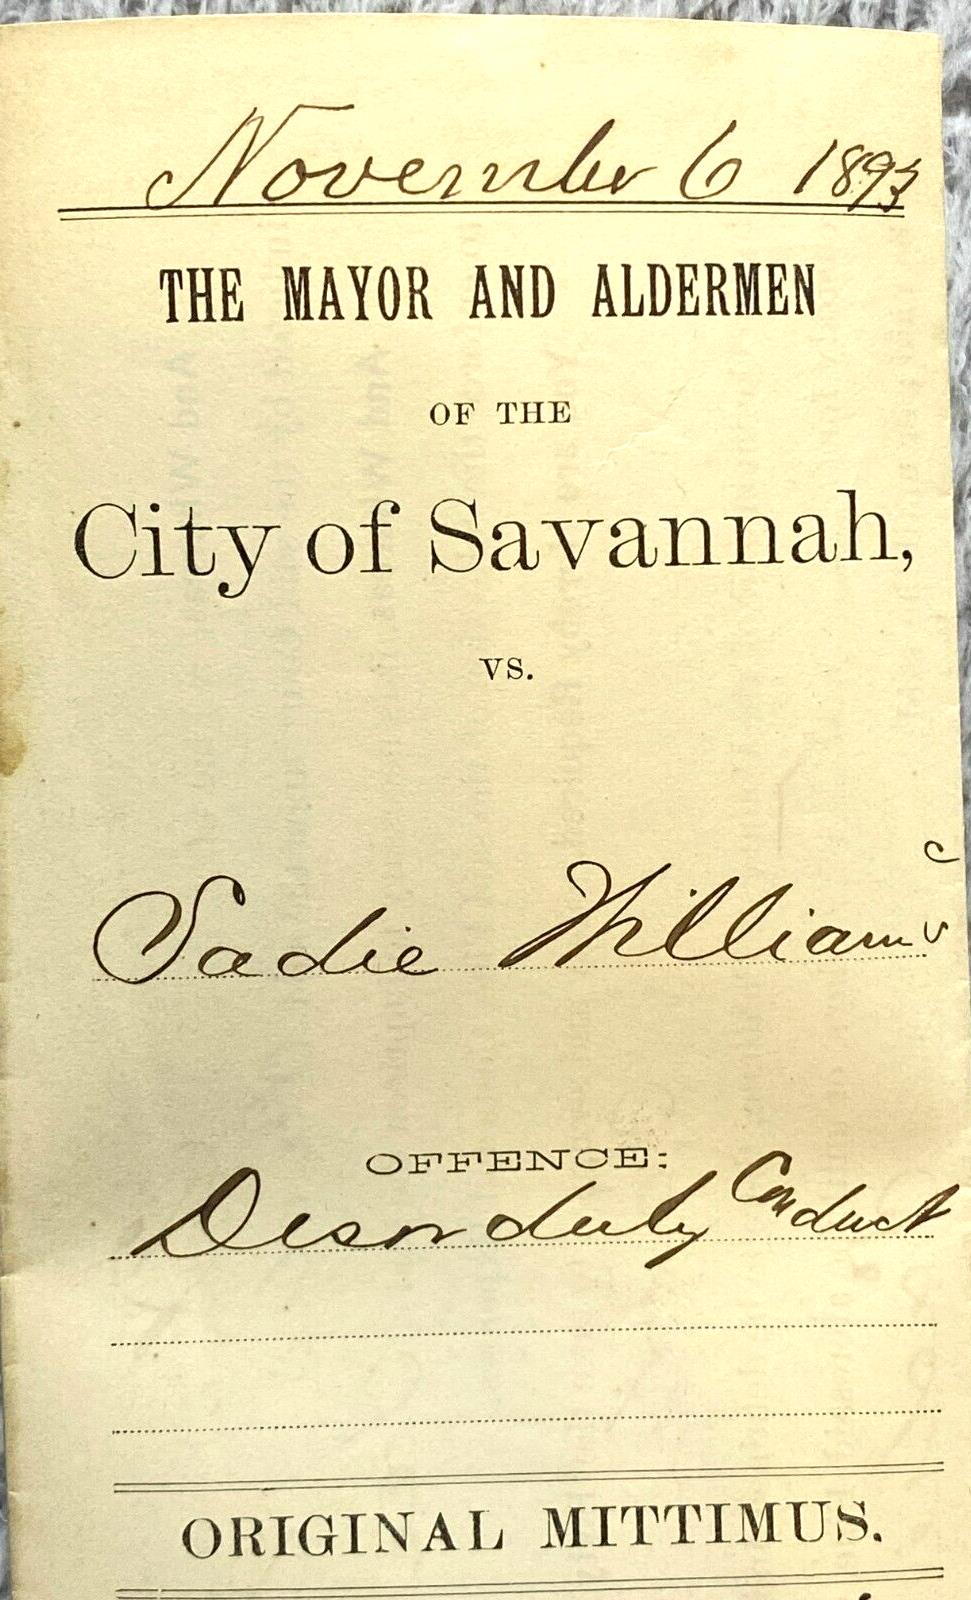 November 6 1893
THE MAYOR AND ALDERMEN
OF THE
City of Savannah,
VS.
c
Sadie Williams
OFFENCE:
Disorderly Conduct
ORIGINAL MITTIMUS.